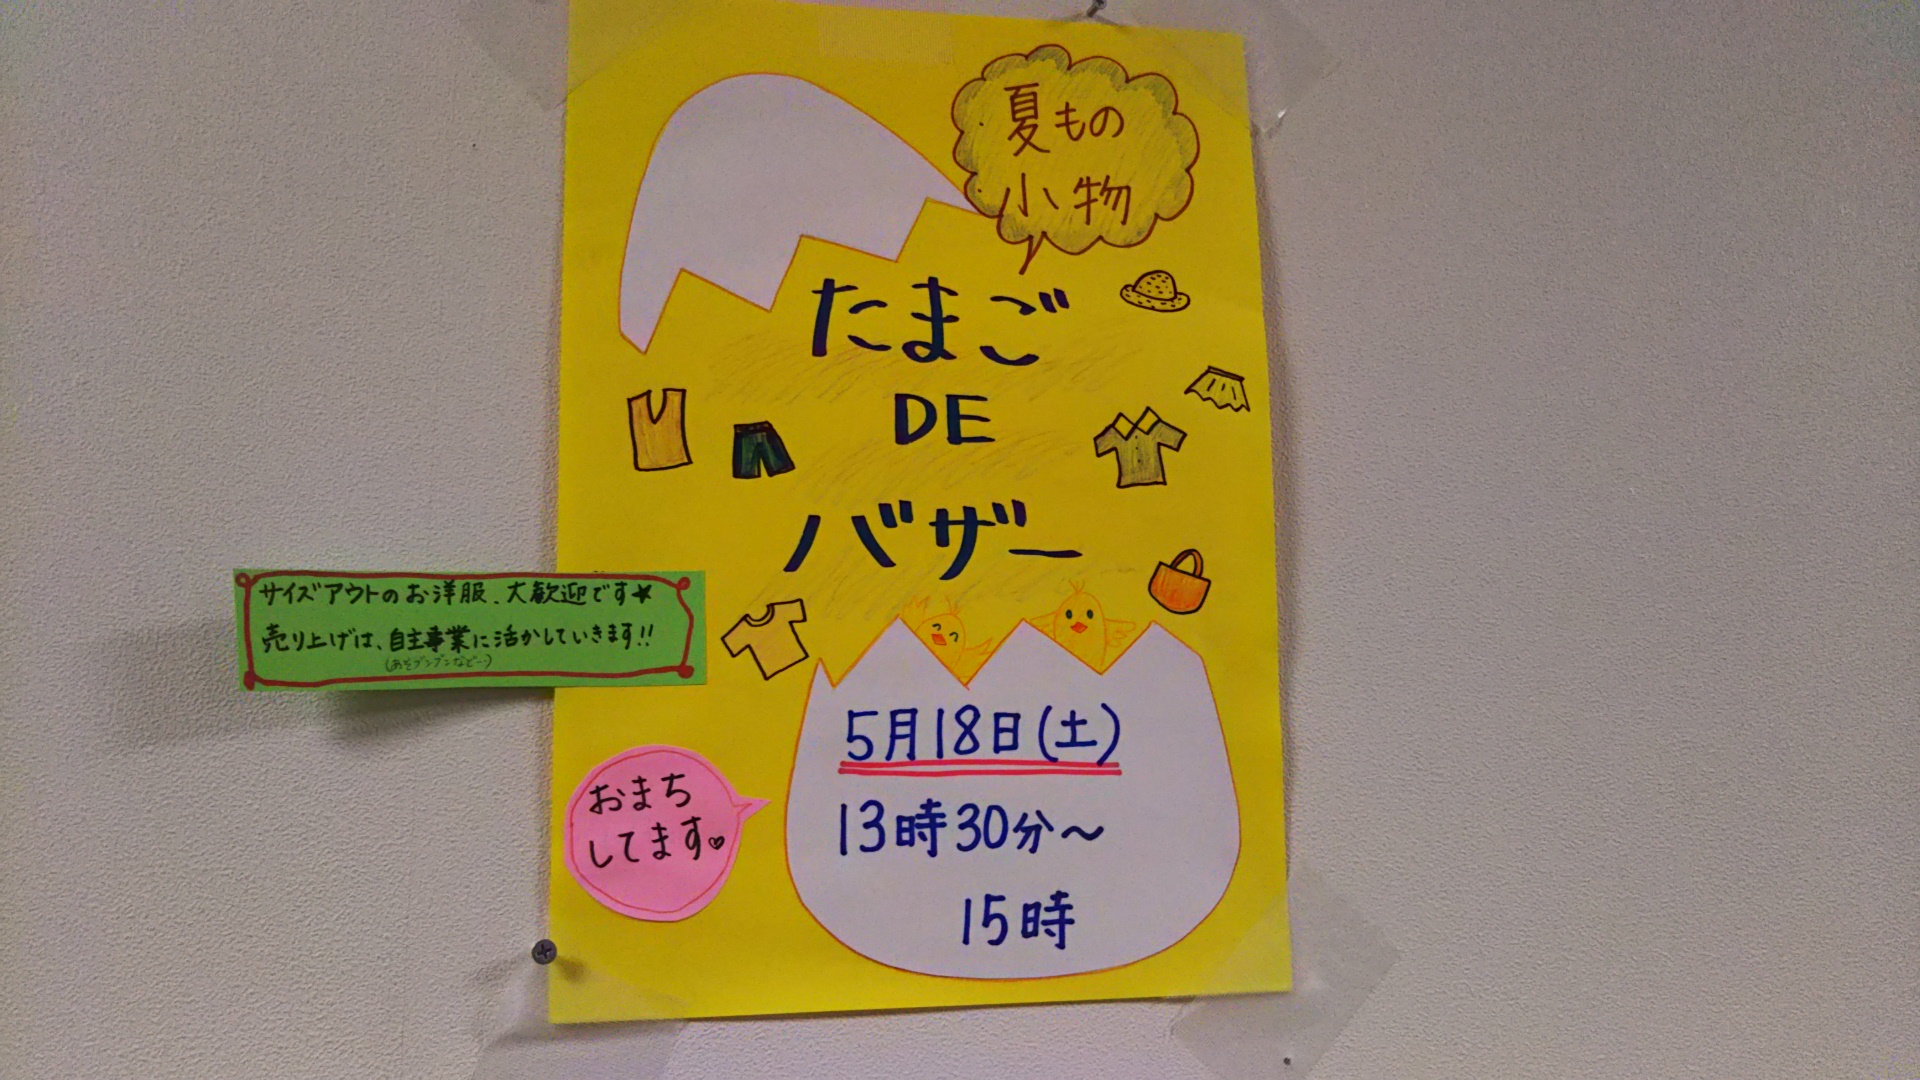 夏もの
小物
たまご
DE
バザー
サイズアウトのお洋服、大歓迎です★
売り上げは、自主事業に活かしていきます!!
5月18日(土)
13時30分～
15時
おまち
してます♡